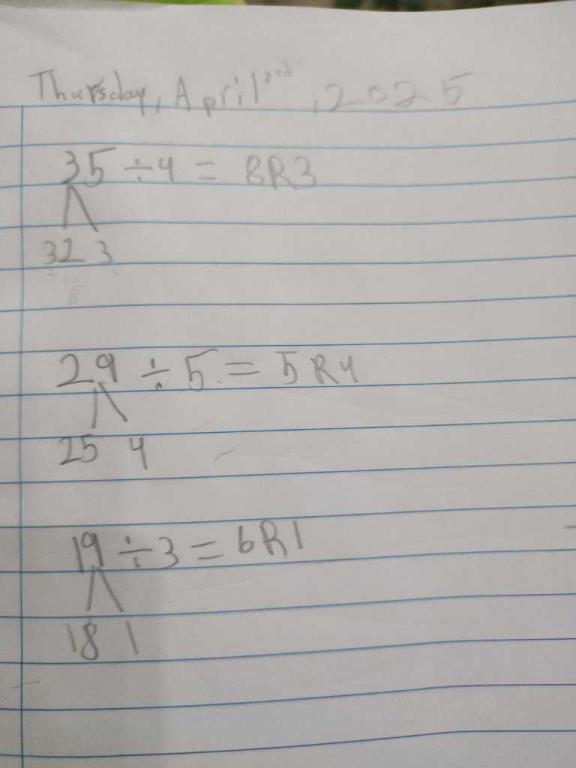 Thursday, April 3rd, 2025
35 ÷ 4 = 8R3
32 3
29 ÷ 5 = 5 R4
25 4
19 ÷ 3 = 6R1
18 1